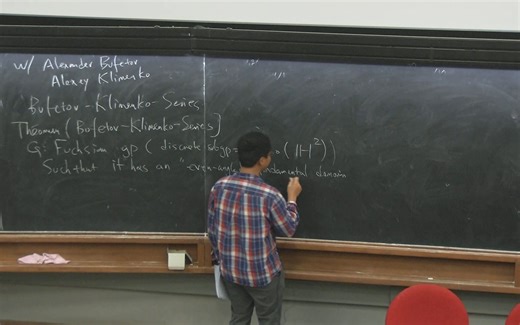 w/ Alexander Bufetov
Alexey Klimenko
Bufetov-Klimenko-Series
Theorem (Bufetov-Klimenko-Series)
G: Fuchsian gp (discrete subgp = (ℍ²))
Such that it has an "even-angle fundamental domain